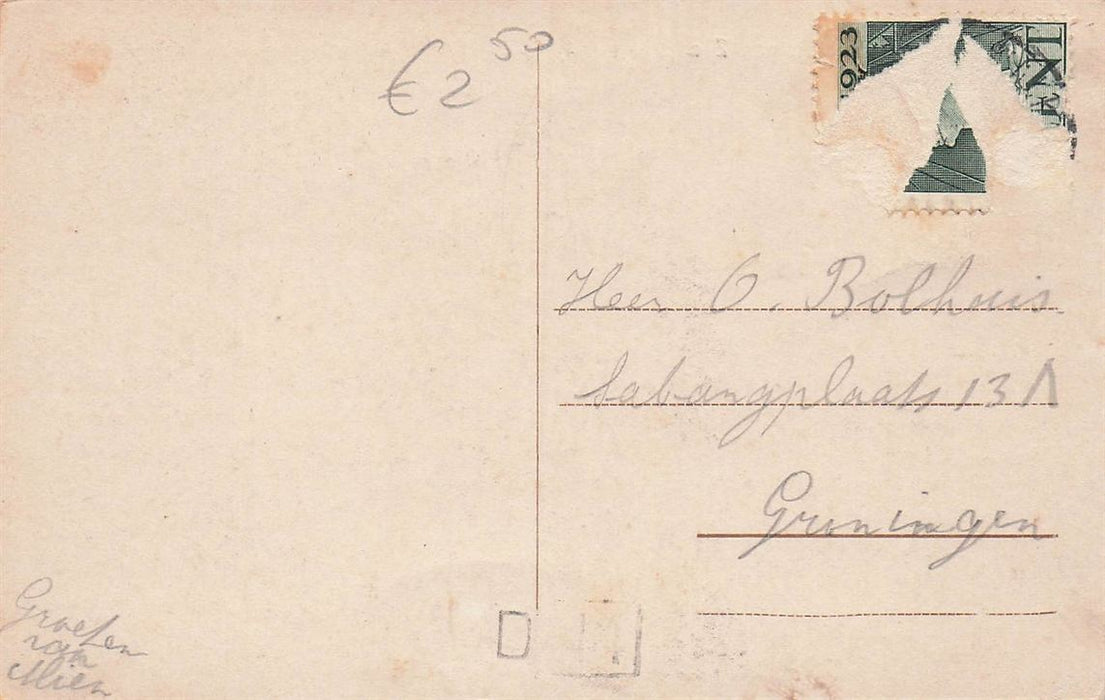 €2 50
1923
Heer O. Bolhuis
Sabangplaats 13 A
Groningen
Groeten
van
Mien